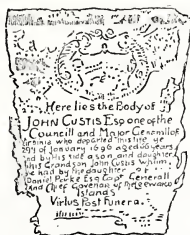 Here lies the Body of
JOHN CUSTIS Esq one of the
Council and Major Generall of
Virginia who departed this life ye
29th of January 1696 aged 66 years
and by his side a son and daughter
of his Grandson John Custis Whom
he had by the daughter of
Daniel Parke Esq Capt Generall
And Chief Govenor of the Leeward
Islands
Virtus Post Funera.